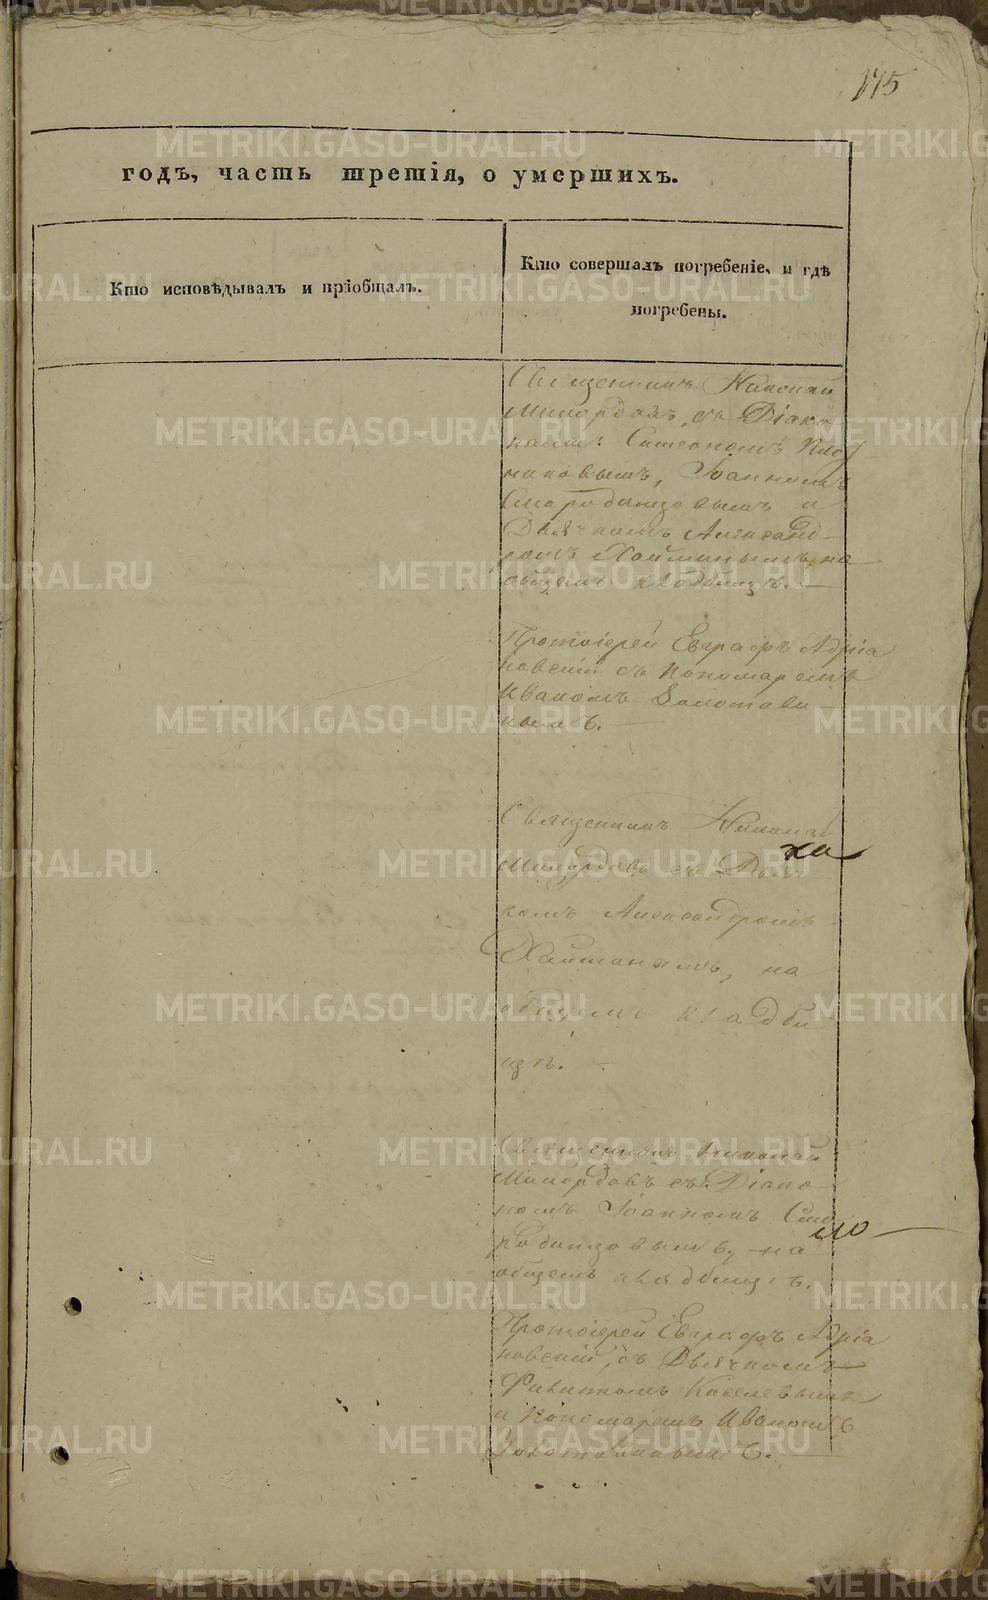 175
годъ, часть третія, о умершихъ.
Кто исповѣдывалъ и пріобщалъ.
Кто совершалъ погребеніе, и гдѣ
погребены.
Священникъ Николай
Милордовъ, съ Діако-
нами: Симеономъ
новымъ, Іоанномъ
Смородинцовымъ и
Дьячкомъ Александ-
ромъ на
общемъ кладбищѣ. —
Протоіерей Евграфъ Адріа
новскій съ Пономаремъ
Иваномъ Золотави-
нымъ. —
Священникъ Николай
Милордовъ съ Дьяч
ха
комъ Александромъ
на
общемъ кладби
щѣ. —
Священникъ Николай
Милордовъ съ Діако-
номъ Іоанномъ Смо
родинцовымъ, на
ло
общемъ кладбищѣ.
Протоіерей Евграфъ Адріа
новскій, съ Дьячкомъ
Филитомъ Киселевымъ
и Пономаремъ Иваномъ
Золотавинымъ. —
METRIKI.GASO-URAL.RU